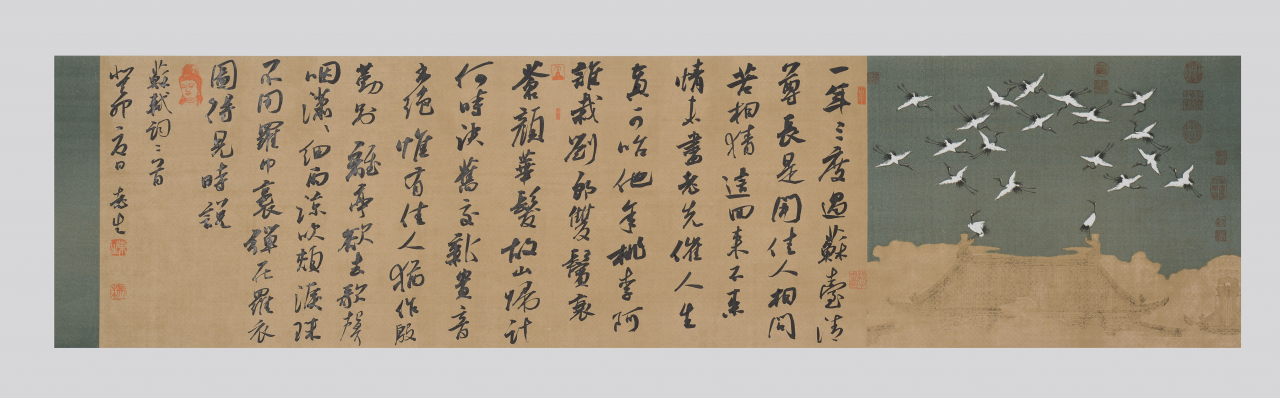 一年三度過蘇臺清
尊長是開佳人相問
苦相猜這回來不來
情未盡老先催人生
真可咍他年桃李阿
誰栽劉郎雙鬢衰
蒼顏華髮故山歸計
何時決舊交新貴音
書絕惟有佳人猶作殷
勤別離亭欲去歌聲
咽瀟々細雨涼吹頰淚珠
不用羅巾裛彈在羅衣
圖得見時說
蘇軾詞二首
癸卯